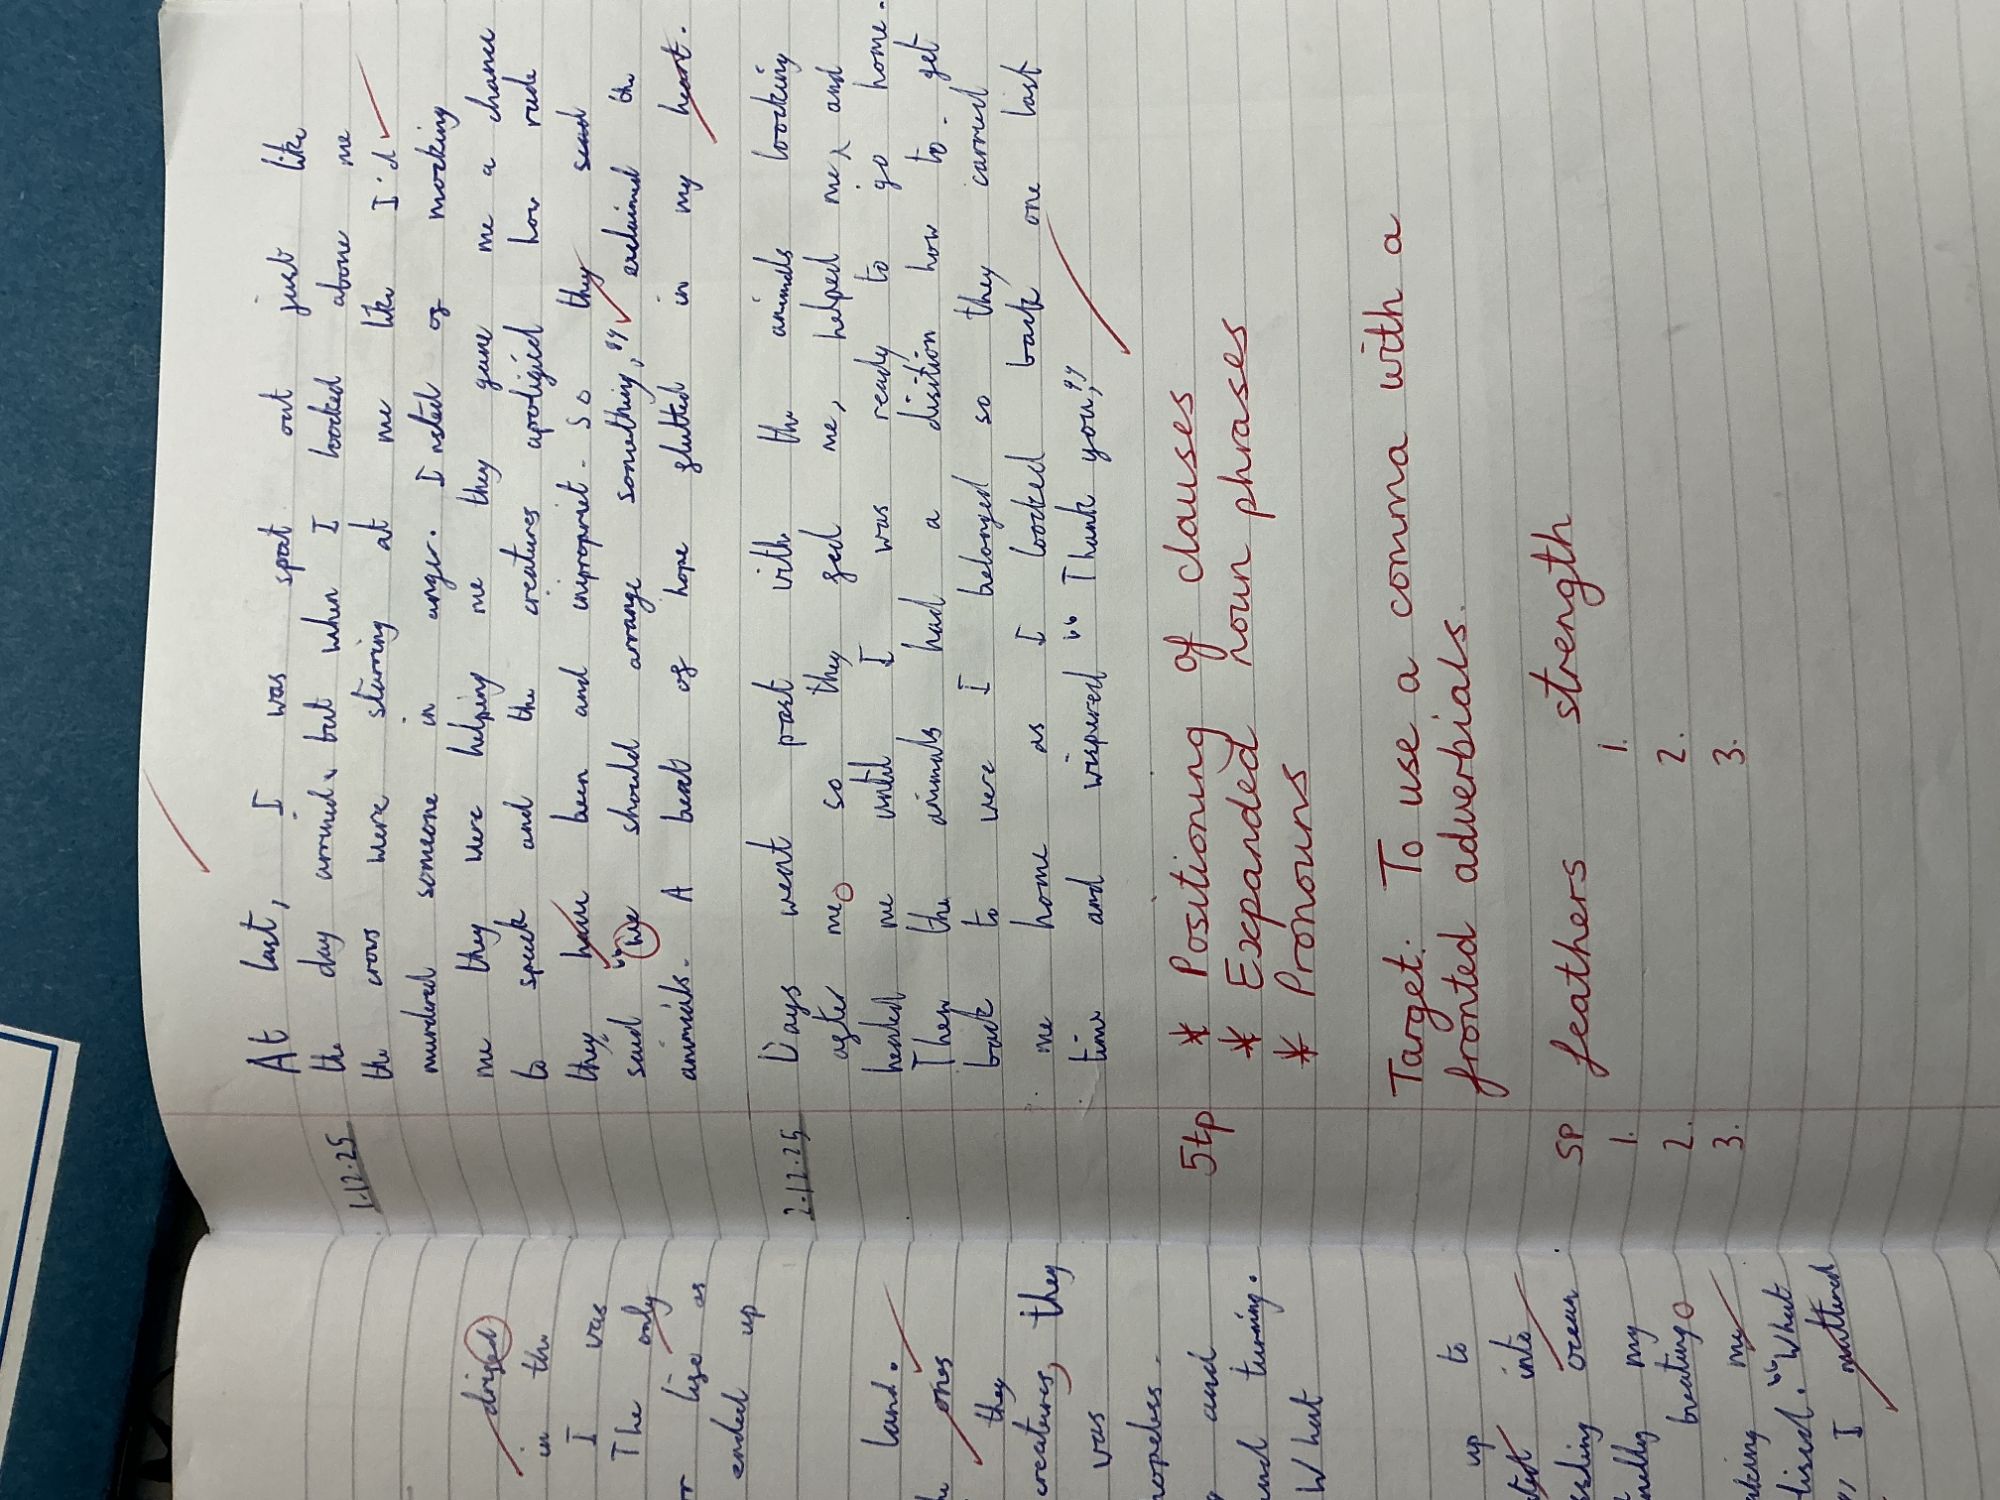 drifed
in the
I was
The only
or life as
ended up
land.
the ones
they
creatures, they
was
hopeless.
and
and turning.
What
up to
into
ocean
my
beating
my
"What
I muttered
1.12.25
At last, I was spat out just like
the day around, but when I looked above me
the crows were staring at me like I'd
murdered someone in anger. Insted of mocking
me they were helping me they gave me a chance
to speek and the creatures apoligied how rude
they have been and inpropriet. So they said
said "we should arrange something," exclaimed the
animals. A beat of hope flutted in my heart.
2.12.25
Days went past with the animals loocking
after me so they fed me, helped me, and
healed me until I was ready to go home.
Then the animals had a disition how to get
back to were I belonged so they carred
me home as I loocked back one last
time and wispered "Thank you,"
Stp * Positioning of clauses
* Expanded noun phrases
* Pronouns
Target: To use a comma with a
fronted adverbials.
SP feathers strength
1. 1.
2. 2.
3. 3.